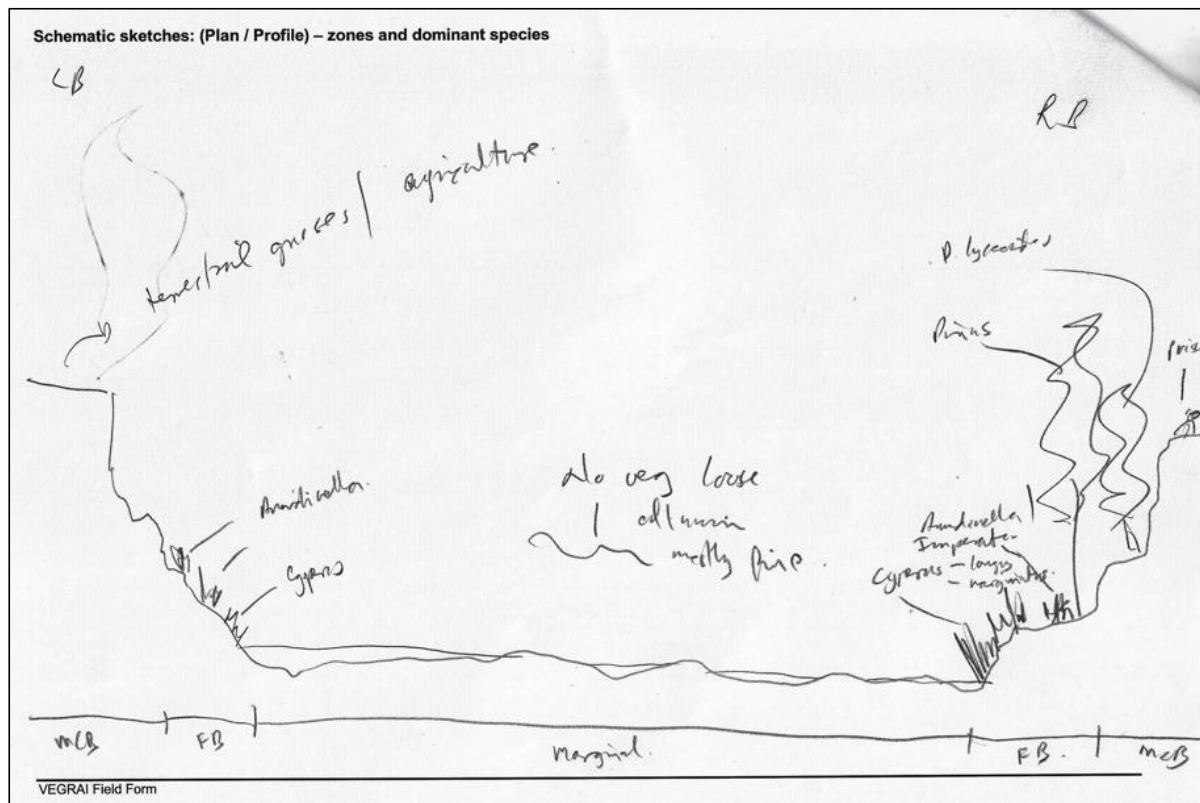 Schematic sketches: (Plan / Profile) – zones and dominant species
LB
RB
terrestrial grasses / agriculture.
D. lycioides
Pinus
Arundinella
Cyperus
very loose
alluvium
mostly fine.
Arundinella
Imperata
Cyperus – longus
– marginatus.
MCB
FB
Marginal.
FB.
MCB
VEGRAI Field Form